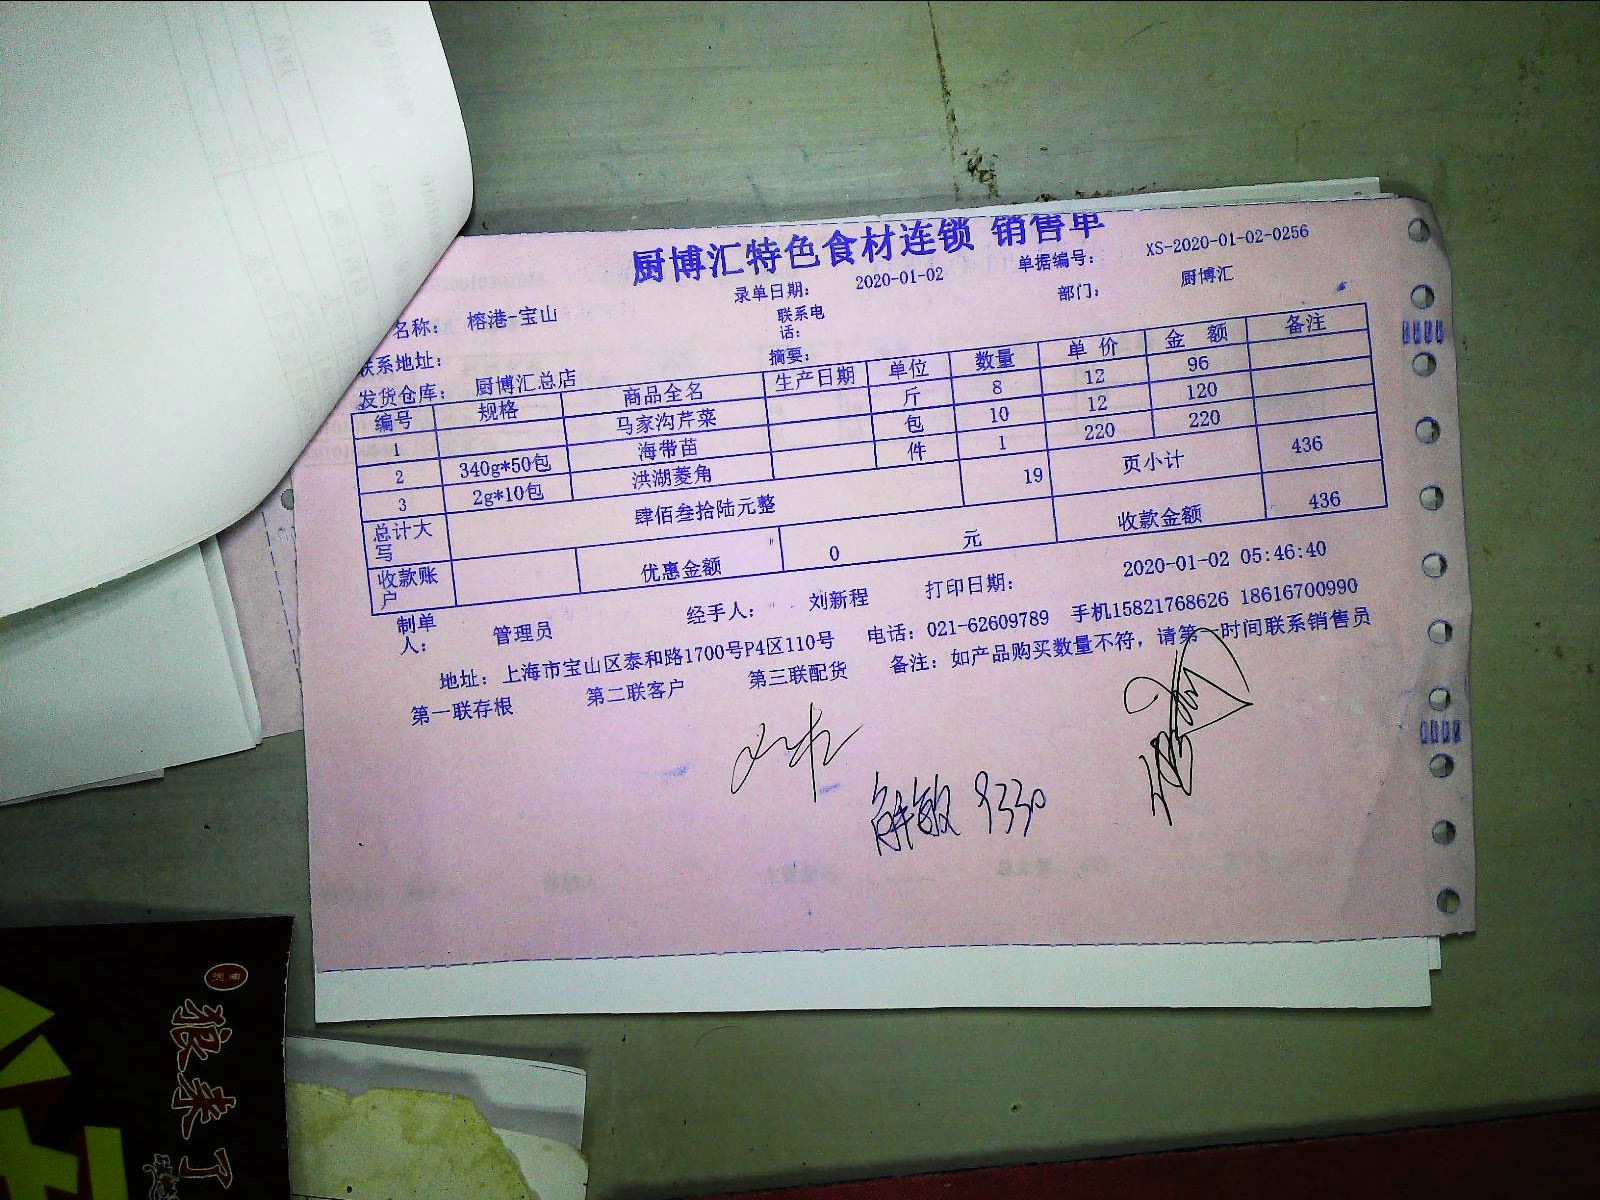 厨博汇特色食材连锁 销售单
录单日期： 2020-01-02 单据编号： XS-2020-01-02-0256
名称： 榕港-宝山 联系电话： 部门： 厨博汇
联系地址： 摘要：
发货仓库： 厨博汇总店
编号 规格 商品全名 生产日期 单位 数量 单 价 金 额 备注
1 马家沟芹菜 斤 8 12 96
2 340g*50包 海带苗 包 10 12 120
3 2g*10包 洪湖菱角 件 1 220 220
总计大写 肆佰叁拾陆元整 19 页小计 436
收款账户 优惠金额 0 元 收款金额 436
制单人： 管理员 经手人： 刘新程 打印日期： 2020-01-02 05:46:40
地址： 上海市宝山区泰和路1700号P4区110号 电话：021-62609789 手机15821768626 18616700990
第一联存根 第二联客户 第三联配货 备注：如产品购买数量不符，请第一时间联系销售员
解敏 9330
狼来了